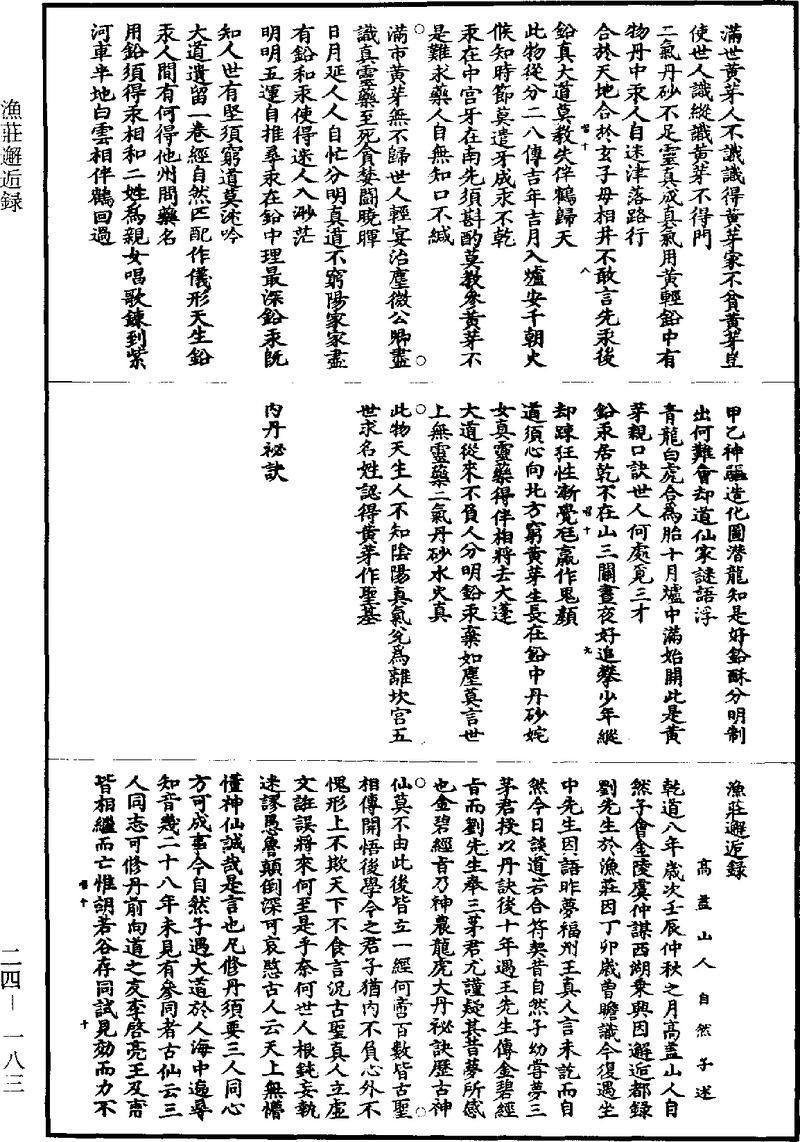 滿世黃芽人不識識得黃芽家不貧黃芽豈
使世人識縱識黃芽不得門
二氣丹砂不足靈真成真氣用黃輕鉛中有
物丹中汞人自迷津落路行
合於天地合於玄子母相并不敢言先汞後
鉛真大道莫教失伴鶴歸天
此物從分二八傳吉年吉月入爐安千朝火
候知時節莫遣牙成汞不乾
汞在中宮牙在南先須斟酌莫教參黃芽不
是難求藥人自無知口不緘
滿市黃芽無不歸世人輕宴治塵微公卿盡
識真靈藥至死貪婪鬪曉暉
日月延人人自忙分明真道不窮陽家家盡
有鉛和汞使得迷人入渺茫
明明五運自推尋汞在鉛中理最深鉛汞既
知人世有堅須窮道莫沭吟
大道遺留一卷經自然匹配作儀形天生鉛
汞人間有何得他州問藥名
用鉛須得汞相和二姓為親女唱歌鍊到紫
河車半地白雲相伴鶴回過
甲乙神驅造化圖潛龍知是好鉛酥分明制
出何難會却道仙家謎語浮
青龍白虎合為胎十月爐中滿始開此是黃
芽親口訣世人何處覓三才
鉛汞居乾不在山三關晝夜好追攀少年縱
却踈狂性漸覺尪羸作鬼顏
道須心向北方窮黃芽生長在鉛中丹砂姹
女真靈藥得伴相將去大蓬
大道從來不負人分明鉛汞棄如塵莫言世
上無靈藥二氣丹砂水火真
此物天生人不知陰陽真氣兌為離坎宮五
世求名姓認得黃芽作聖基
內丹祕訣
漁莊邂逅錄
高蓋山人自然子述
乾道八年歲次壬辰仲秋之月高蓋山人自
然子會金陵虞仲謀西湖乘興因邂逅都錄
劉先生於漁莊因丁卯歲曾瞻識今復遇坐
中先生因語昨夢福州王真人言未訖而自
然今日談道若合符契昔自然子幼嘗夢三
茅君授以丹訣後十年遇王先生傳金碧經
旨而劉先生奉三茅君尤謹疑其昔夢所感
也金碧經旨乃神農龍虎大丹祕訣歷古神
仙莫不由此後皆立一經何啻百數皆古聖
相傳開悟後學今之君子猶內不負心外不
愧形上不欺天下不食言況古聖真人立虛
文誑誤將來何至是乎奈何世人根鈍妄執
迷謬愚魯顛倒深可哀愍古人云天上無懵
懂神仙誠哉是言也凡修丹須要三人同心
方可成事今自然子遇大道於人海中遍尋
知音幾二十八年未見有參同者古仙云三
人同志可修丹前向道之友李啓亮王及甯
皆相繼而亡惟胡若谷存同試見効而力不
漁莊邂逅録
二四—一八三